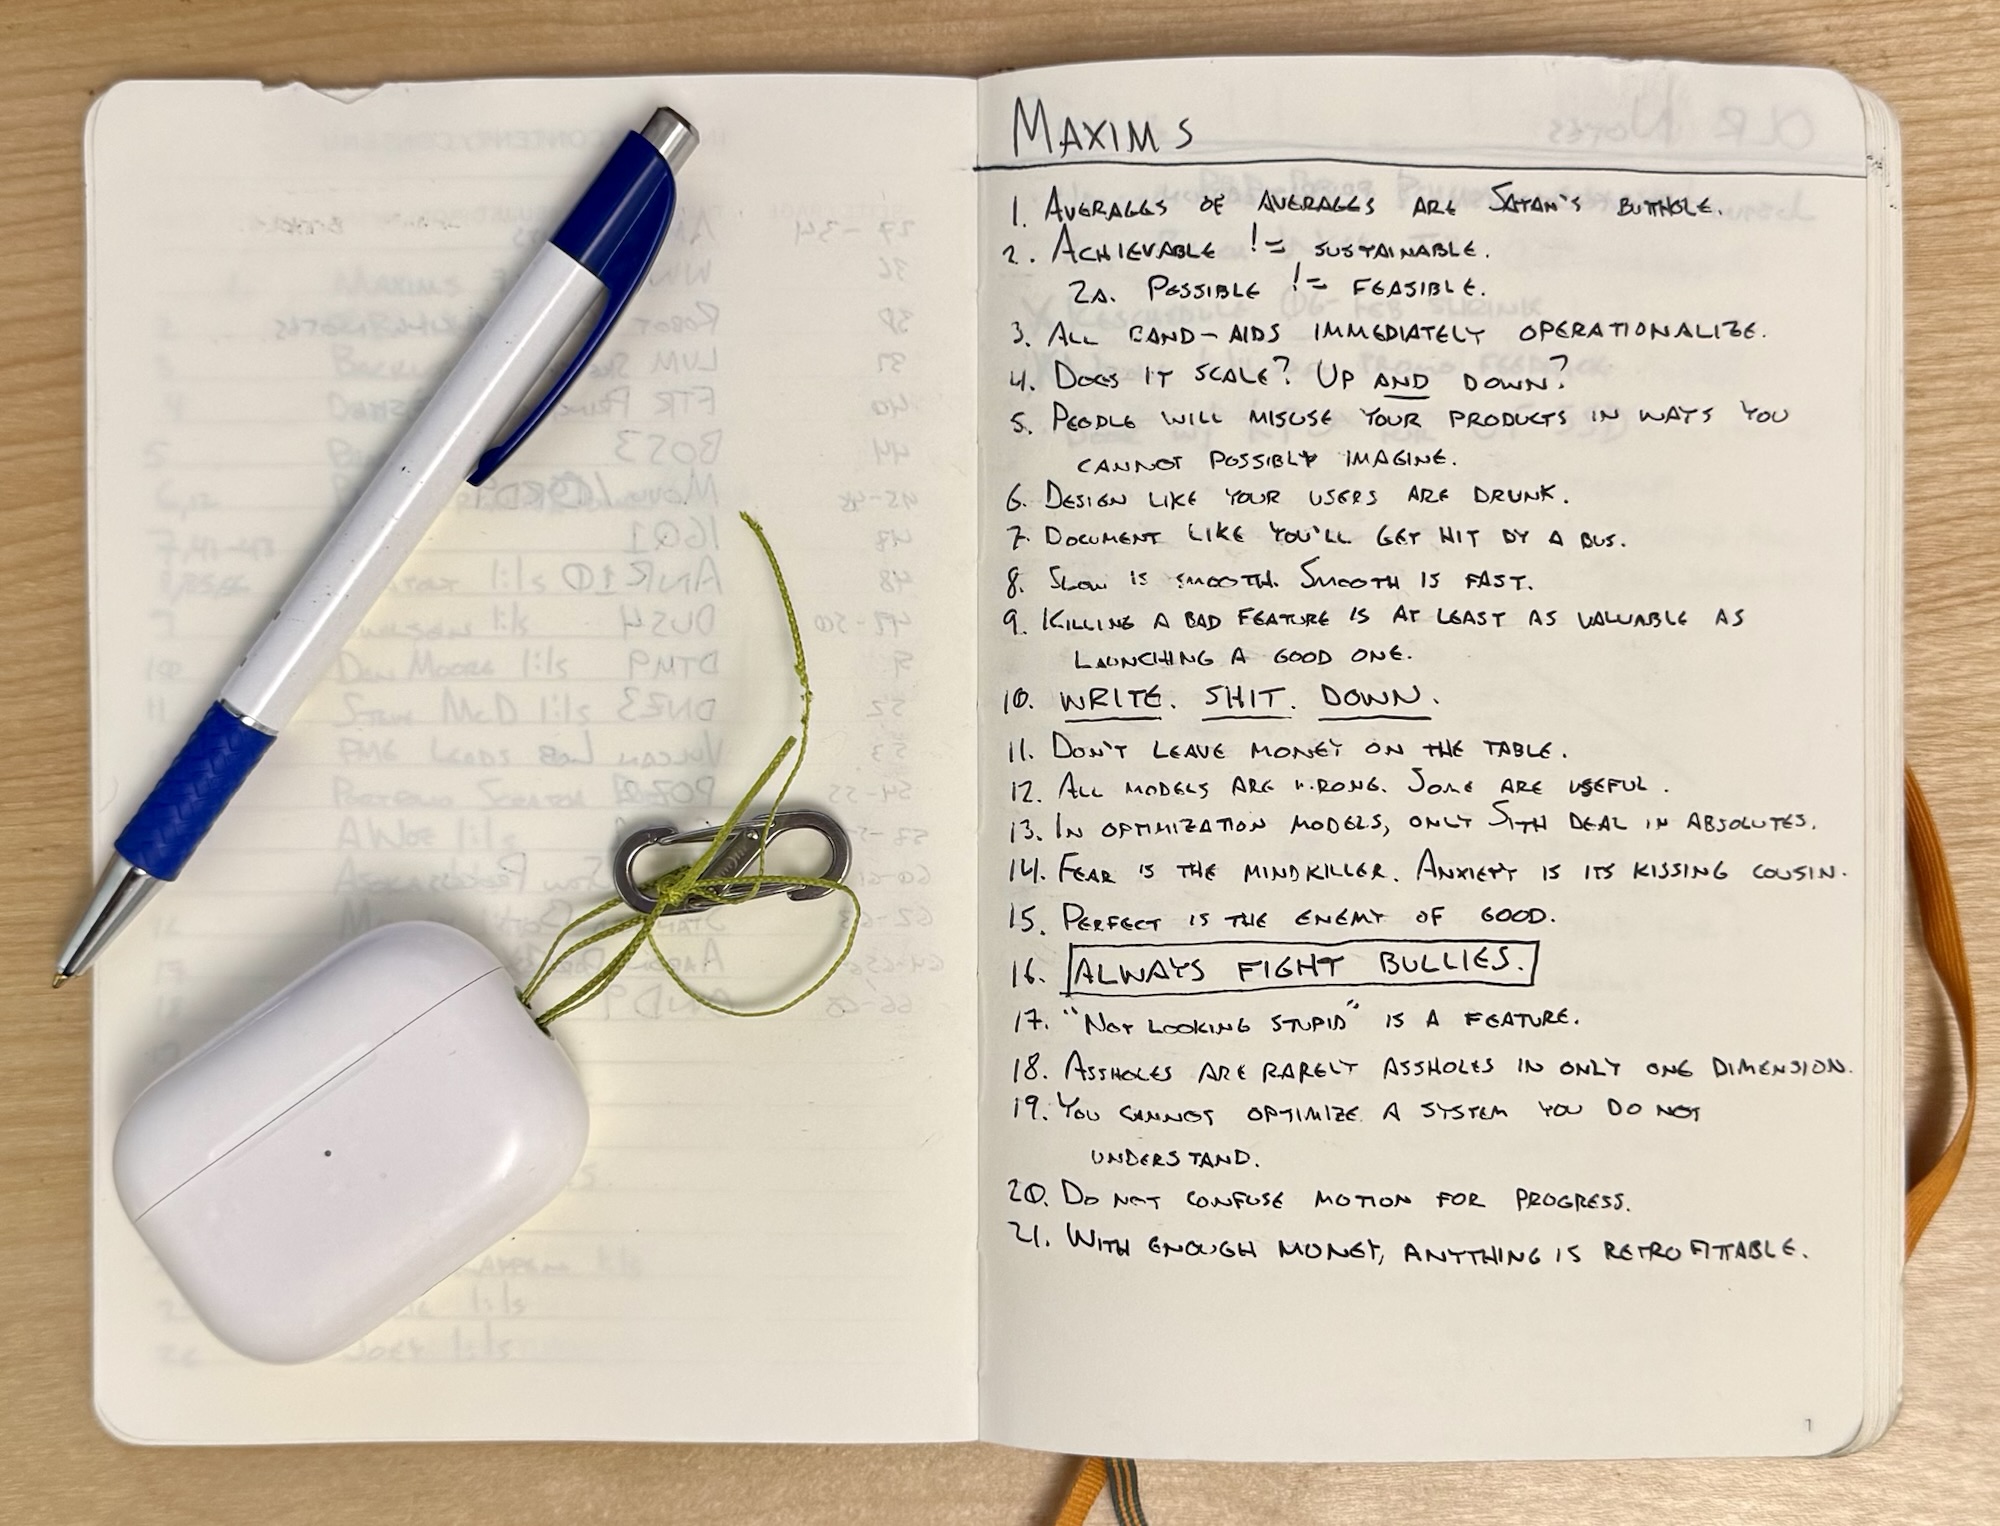 MAXIMS
1. AVERAGES OF AVERAGES ARE SATAN'S BUTTHOLE.
2. ACHIEVABLE != SUSTAINABLE.
2A. POSSIBLE != FEASIBLE.
3. ALL BAND-AIDS IMMEDIATELY OPERATIONALIZE.
4. DOES IT SCALE? UP AND DOWN?
5. PEOPLE WILL MISUSE YOUR PRODUCTS IN WAYS YOU
CANNOT POSSIBLY IMAGINE.
6. DESIGN LIKE YOUR USERS ARE DRUNK.
7. DOCUMENT LIKE YOU'LL GET HIT BY A BUS.
8. SLOW IS SMOOTH. SMOOTH IS FAST.
9. KILLING A BAD FEATURE IS AT LEAST AS VALUABLE AS
LAUNCHING A GOOD ONE.
10. WRITE. SHIT. DOWN.
11. DON'T LEAVE MONEY ON THE TABLE.
12. ALL MODELS ARE WRONG. SOME ARE USEFUL.
13. IN OPTIMIZATION MODELS, ONLY SITH DEAL IN ABSOLUTES.
14. FEAR IS THE MINDKILLER. ANXIETY IS ITS KISSING COUSIN.
15. PERFECT IS THE ENEMY OF GOOD.
16. ALWAYS FIGHT BULLIES.
17. "NOT LOOKING STUPID" IS A FEATURE.
18. ASSHOLES ARE RARELY ASSHOLES IN ONLY ONE DIMENSION.
19. YOU CANNOT OPTIMIZE A SYSTEM YOU DO NOT
UNDERSTAND.
20. DO NOT CONFUSE MOTION FOR PROGRESS.
21. WITH ENOUGH MONEY, ANYTHING IS RETROFITTABLE.
1